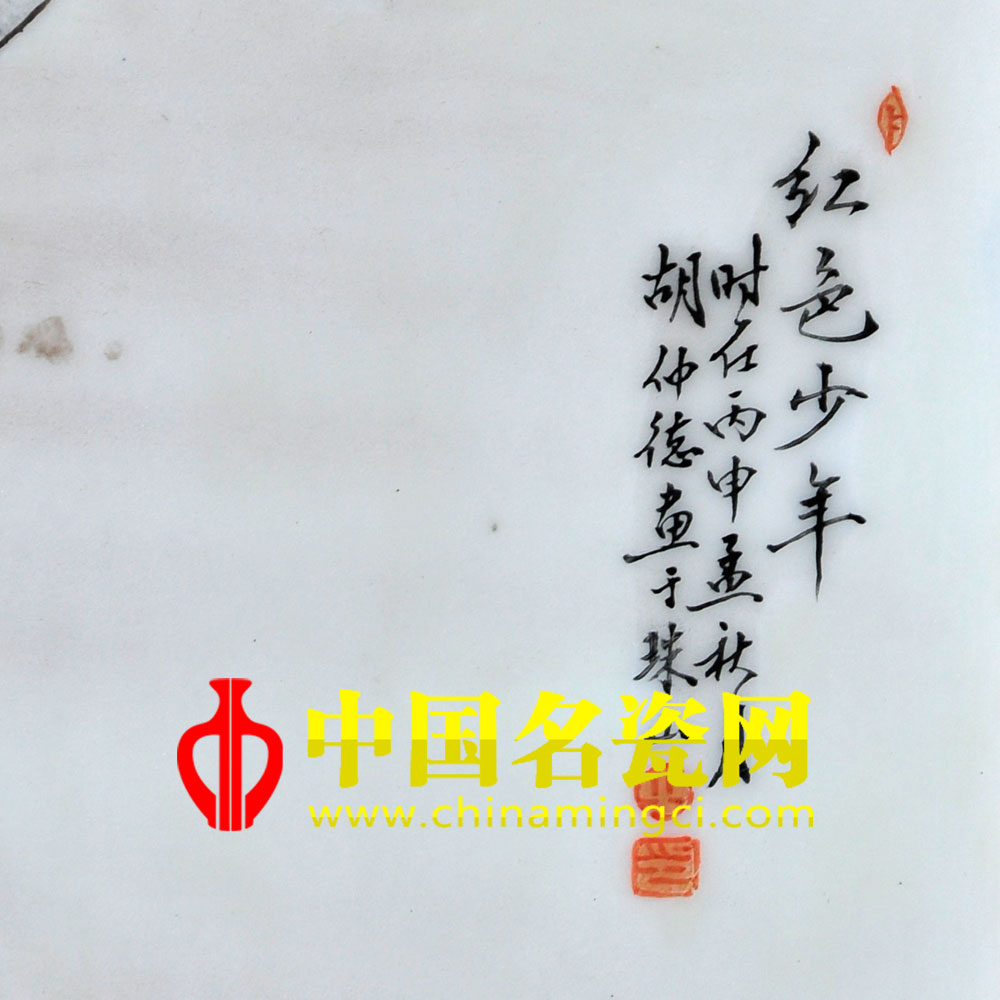 红色少年
时在丙申孟秋月
胡仲德画于珠山
中国名瓷网
www.chinamingci.com